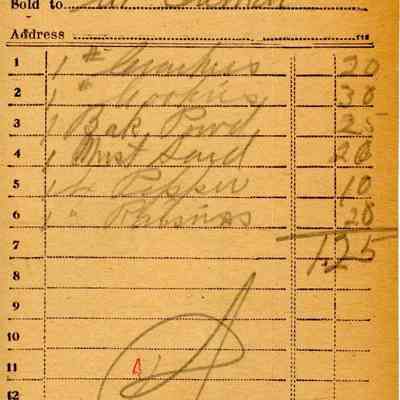 Sold to
Address
1 1 # Crackers 20
2 1 " Cookies 30
3 1 Bak Powd 25
4 1 Must Sard 20
5 1 " Pepper 10
6 1 " Raisins 20
7 1.25
8
9
10
11 4
12